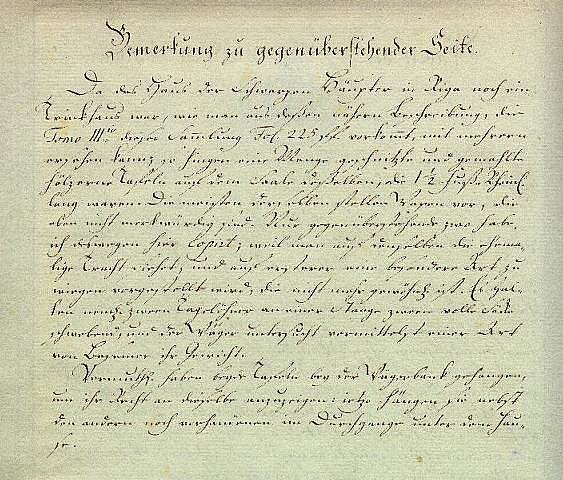 Bemerkung zu gegenüberstehender Seite.
Da das Haus der Schwarzen Häupter in Riga noch ein
Trinkhaus war, wie man aus deßen nähern Beschreibung, die
Tomo III dieser Sammlung Fol. 225 vorkommt, mit mehrern
ersehen kann; so hingen eine Menge geschnitzte und gemahlte
hölzerne Tafeln auf dem Saale desselben, die 1½ Fuß Rheinl.
lang waren. Die meisten derselben stellen Wapen vor, die
eben nicht merkwürdig sind. Nur gegenüberstehende zwo habe
ich deswegen hier copirt, weil man auf denselben die ehema-
lige Tracht siehet, und auf ersterer eine besondere Art zu
wiegen vorgestellt wird, die nicht mehr gewöhnlich ist. Es hal-
ten nemlich zween Tagelöhner an einer Stange zween volle Säcke
schwebend, und der Wäger untersucht vermittelst einer Art
von Besemer ihr Gewicht.
Vermuthl. haben beyde Tafeln bey der Wägerbank gehangen,
um ihr Recht an derselbe anzuzeigen: jetzo hängen sie nebst
den andern noch vorhandenen im Durchgange unter dem Hau-
se.